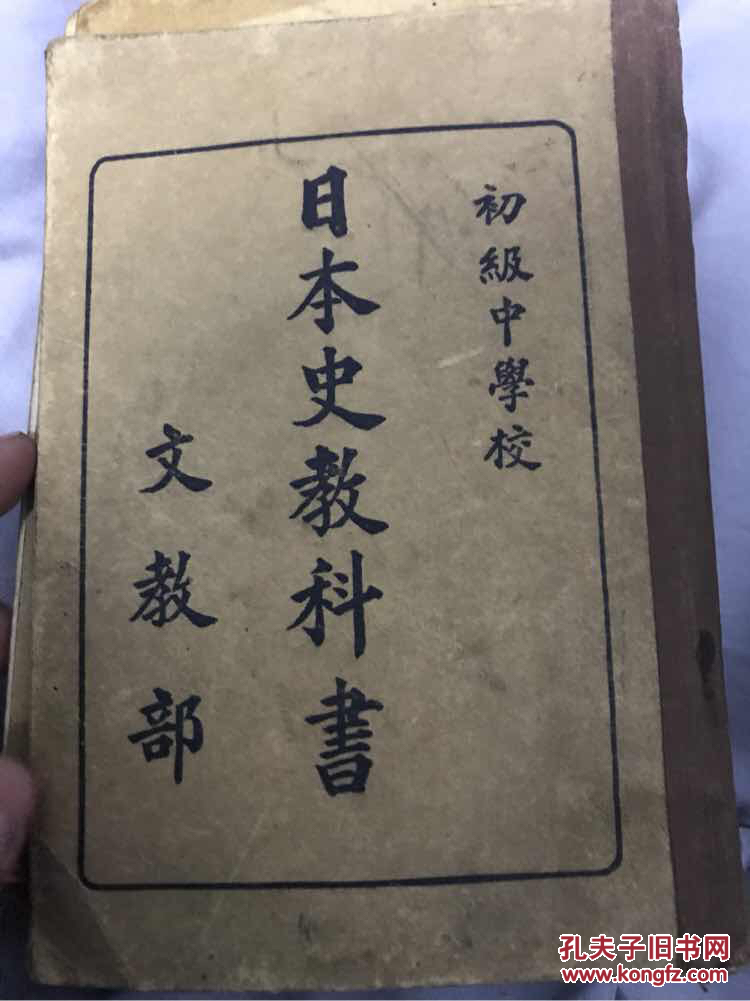 初級中學校
日本史教科書
文教部
孔夫子旧书网
www.kongfz.com